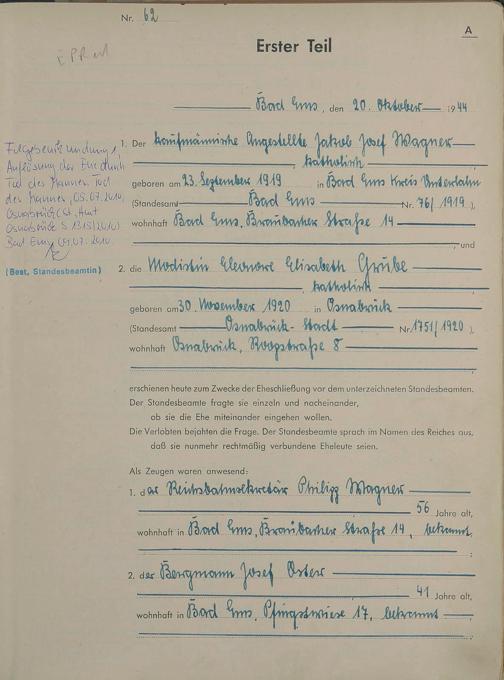 Nr. 62
A
Erster Teil
Bad Ems, den 20. Oktober 1944
1. Der kaufmännische Angestellte Jakob Josef Wagner
katholisch
geboren am 23. September 1919 in Bad Ems Kreis Unterlahn
(Standesamt Bad Ems Nr. 76/1919),
wohnhaft Bad Ems, Braubacher Straße 14
, und
2. die Modistin Eleonore Elisabeth Grube
katholisch
geboren am 30. November 1920 in Osnabrück
(Standesamt Osnabrück-Stadt Nr. 1751/1920),
wohnhaft Osnabrück, Roopstraße 8
Folgebeurkundung 1,
Auflösung der Ehe durch
Tod des Mannes. Tod
des Mannes, 05.07.2010,
Osnabrück (St.Amt
Osnabrück S 1315/2010)
Bad Ems, 09.07.2010.
(Best, Standesbeamtin)
erschienen heute zum Zwecke der Eheschließung vor dem unterzeichneten Standesbeamten.
Der Standesbeamte fragte sie einzeln und nacheinander,
ob sie die Ehe miteinander eingehen wollen.
Die Verlobten bejahten die Frage. Der Standesbeamte sprach im Namen des Reiches aus,
daß sie nunmehr rechtmäßig verbundene Eheleute seien.
Als Zeugen waren anwesend:
1. der Reichsbahnsekretär Philipp Wagner
56 Jahre alt,
wohnhaft in Bad Ems, Braubacher Straße 14, bekannt
;
2. der Bergmann Josef Oster
41 Jahre alt,
wohnhaft in Bad Ems, Pfingstwiese 17, bekannt